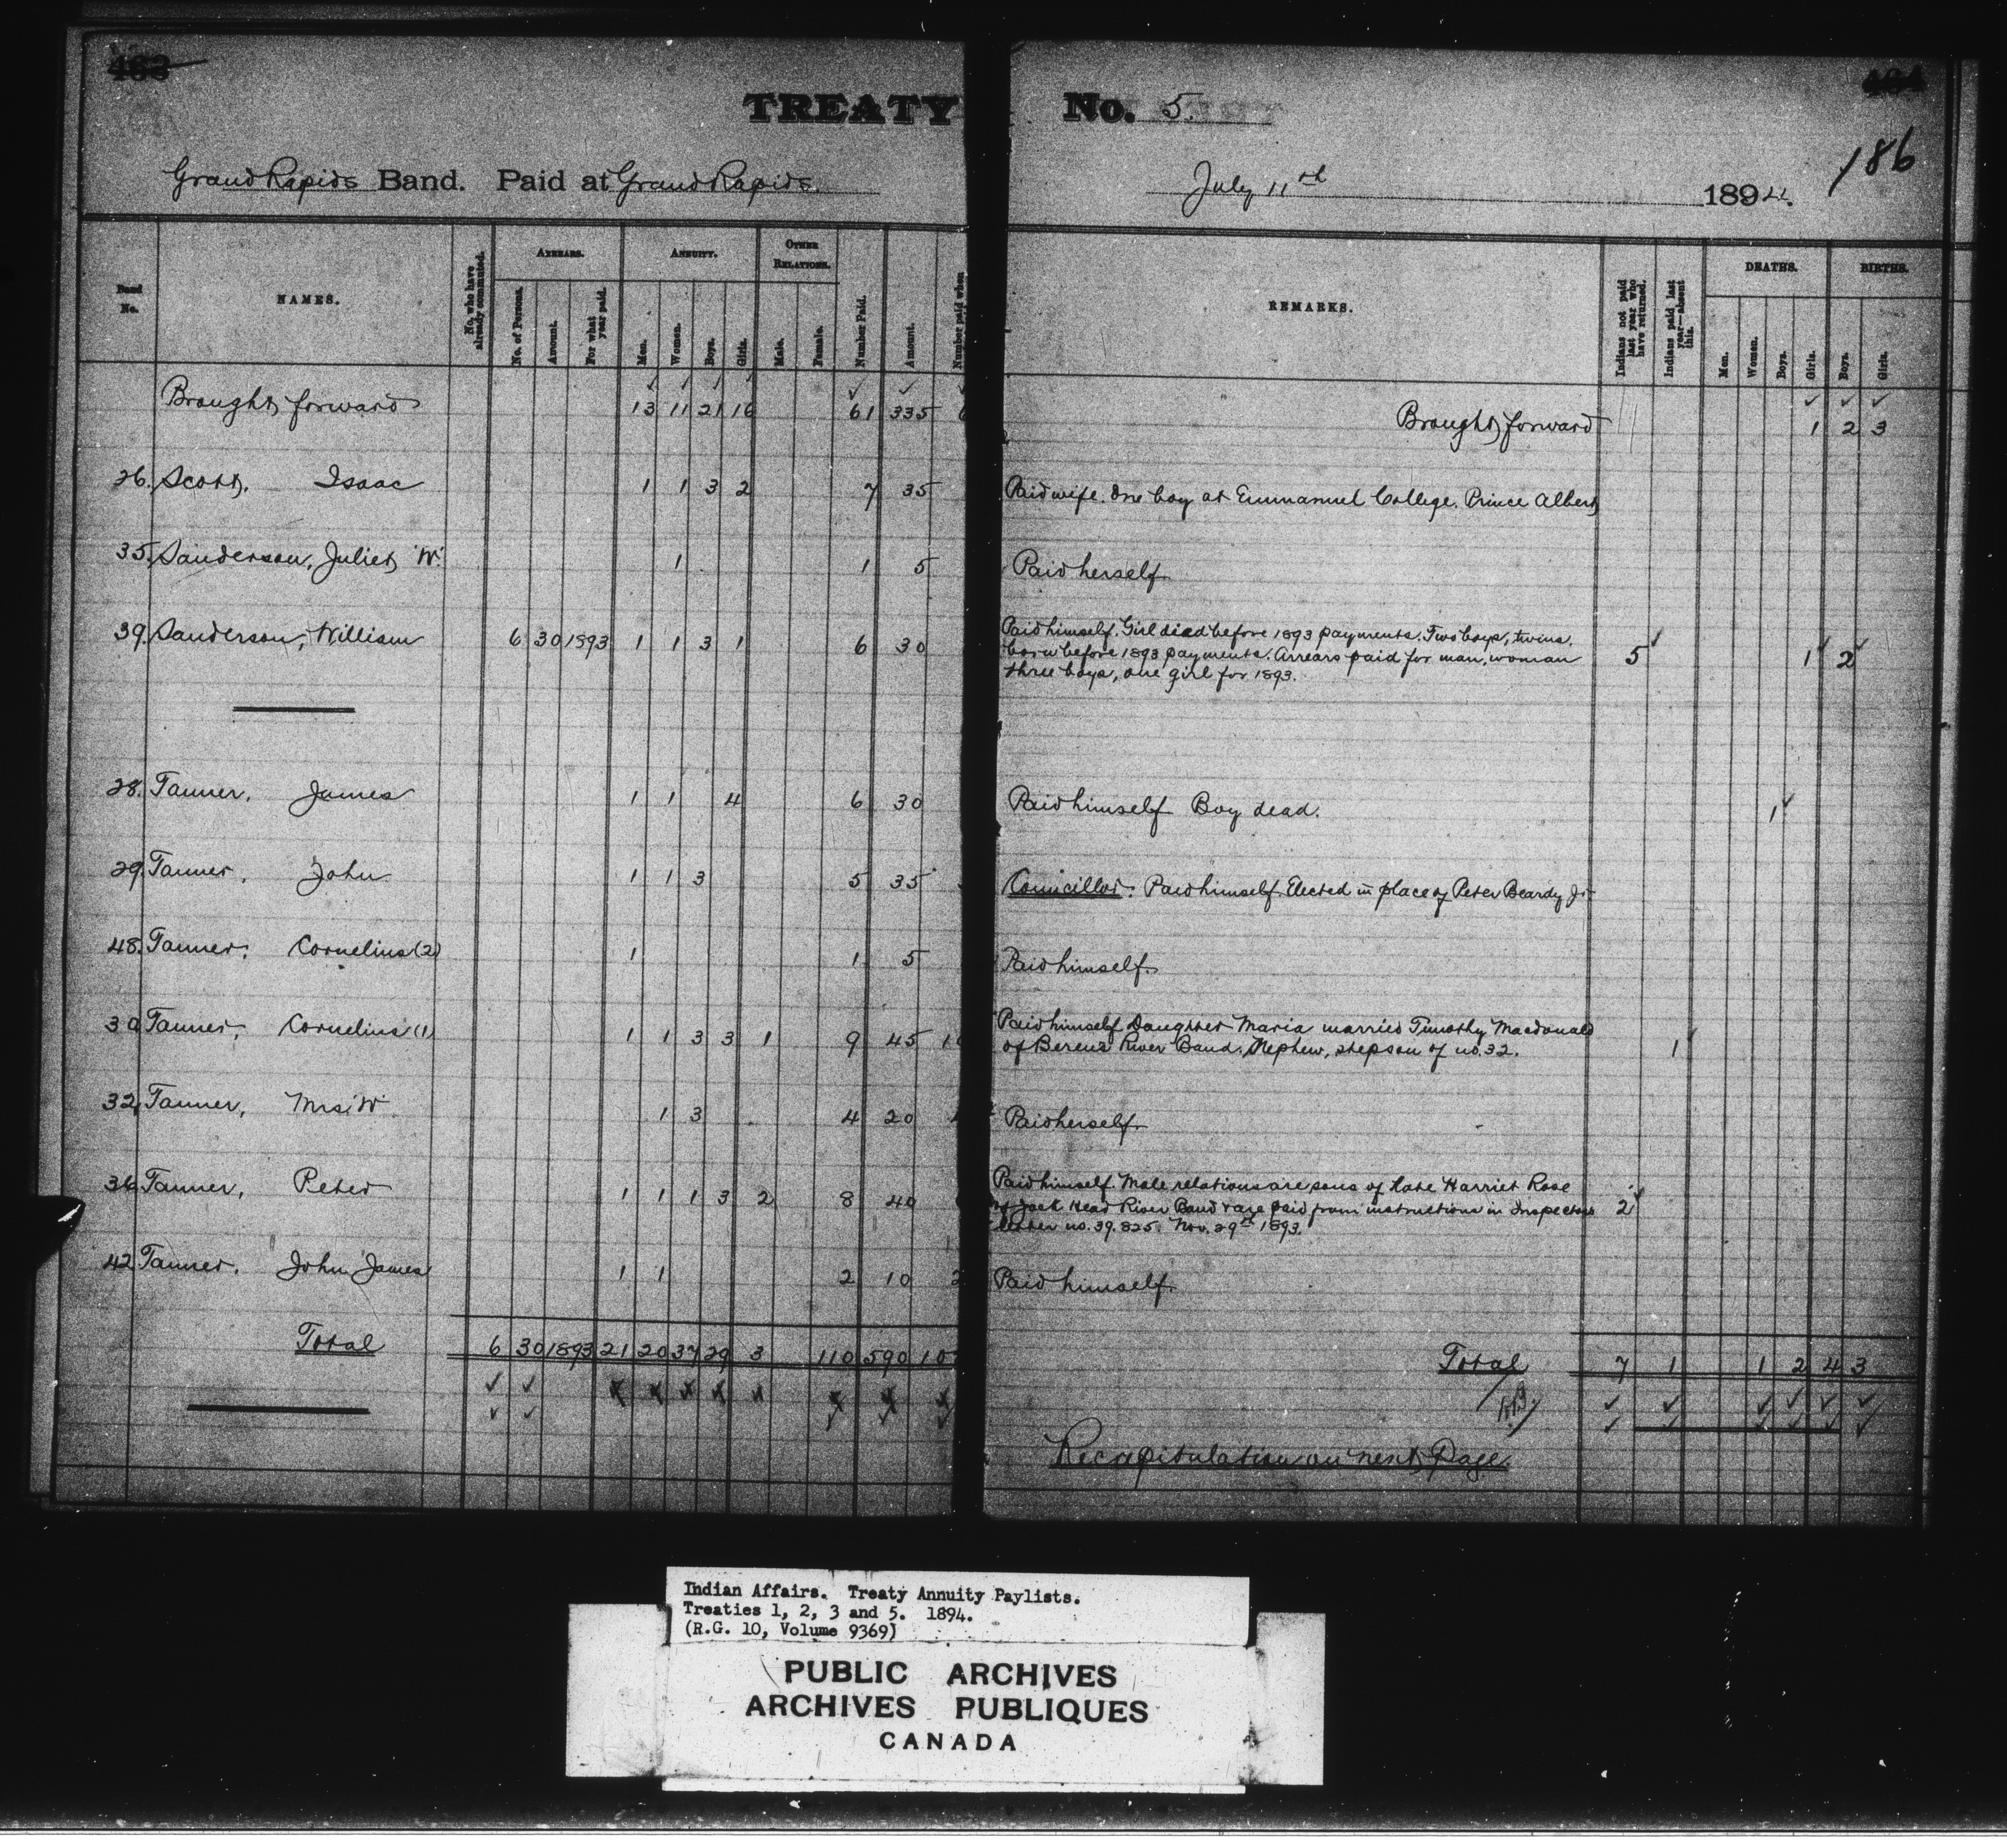 483
TREATY No. 5.
186
Grand Rapids Band. Paid at Grand Rapids. July 11th 1894.
Band No.
NAMES.
No. who have already commuted.
ARREARS.
No. of Persons.
Amount.
For what year paid.
ANNUITY.
Men.
Women.
Boys.
Girls.
OTHER RELATIONS.
Male.
Female.
Number Paid.
Amount.
Number paid when
REMARKS.
Indians not paid last year who have returned.
Indians paid last year—absent this.
DEATHS.
Men.
Women.
Boys.
Girls.
BIRTHS.
Boys.
Girls.
Brought forward 13 11 21 16 61 335 6 Brought forward 1 2 3
26. Scott, Isaac 1 1 3 2 7 35 Paid wife. One boy at Emmanuel College. Prince Albert
35. Sanderson, Juliet, W. 1 1 5 Paid herself
39. Sanderson, William 6 30 1893 1 1 3 1 6 30 Paid himself. Girl died before 1893 payments. Two boys, twins,
born before 1893 payments. Arrears paid for man, woman 5 1 2
three boys, one girl for 1893.
28. Tanner, James 1 1 4 6 30 Paid himself Boy dead. 1
29. Tanner, John 1 1 3 5 35 Councillor. Paid himself. Elected in place of Peter Beardy Jr
48. Tanner, Cornelius (2) 1 1 5 Paid himself.
30 Tanner, Cornelius (1) 1 1 3 3 1 9 45 10 Paid himself Daughter Maria married Timothy Macdonald
of Berens River Band. Nephew, stepson of no. 32. 1
32. Tanner, Mrs. W. 1 3 4 20 Paid herself.
36. Tanner, Peter 1 1 1 3 2 8 40 Paid himself. Male relations are sons of late Harriet Rose
of Jack Head River Band & are paid from instructions in Inspectors 2
letter no. 39.825. Nov. 29th 1893.
42. Tanner, John James 1 1 2 10 2 Paid himself.
Total 6 30 1893 21 20 37 29 3 110 590 107 Total 7 1 1 2 4 3
Recapitulation on next Page.
Indian Affairs. Treaty Annuity Paylists.
Treaties 1, 2, 3 and 5. 1894.
(R.G. 10, Volume 9369)
PUBLIC ARCHIVES
ARCHIVES PUBLIQUES
CANADA